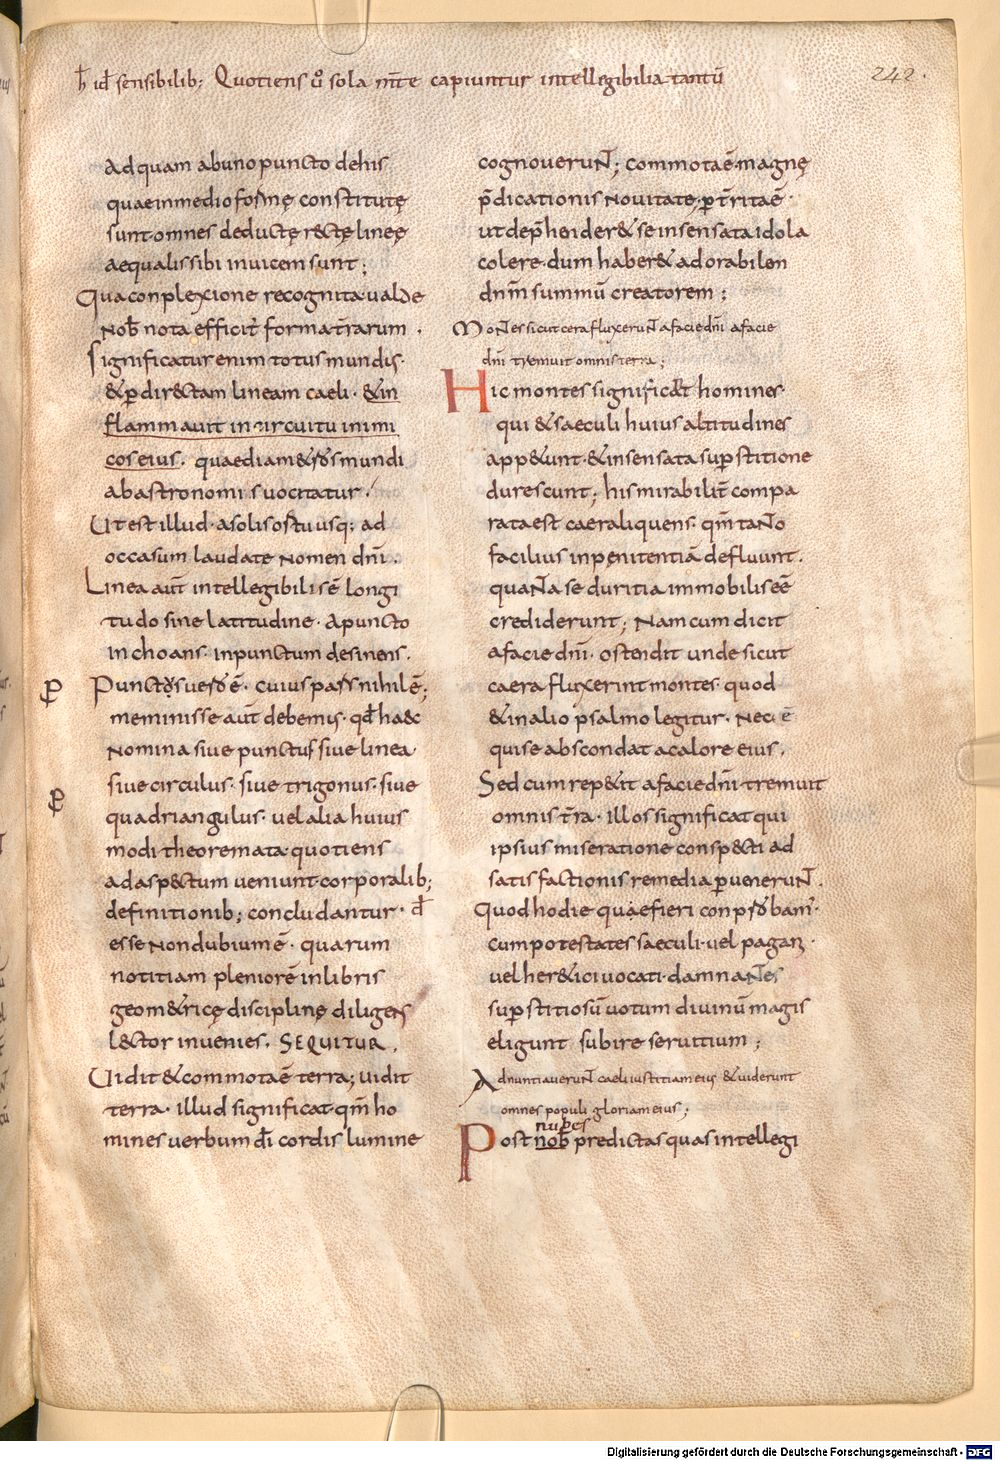 h̄ id sensibilib; Quotiens ũ sola m̄te capiuntur intellegibilia tantū
242.
Ad quam ab uno puncto de his
quae in medio formę constitutę
sunt. omnes deductę rectę lineę
aequalis sibi invicem sunt;
Qua conplexione recognita valde
nob̄ nota efficit̄ forma t̄rarum.
Significatur enim totus mundis.
& p̱ dir&tam lineam caeli. & in
flammavit in circuitu inimi
cos eius. quae diam&ros mundi
ab astronomis vocitatur.
Ut est illud. a solis ortu usq; ad
occasum laudate nomen dn̄i.
Linea aut̄ intellegibilis ē longi
tudo sine latitudine. A puncto
inchoans. in punctum desinens.
Punctus vero ē. cuius pars nihil ē;
meminisse aut̄ debemus. qd̄ haec
Nomina sive punctus sive linea.
sive circulus. sive trigonus. sive
quadriangulus. vel alia huius
modi theoremata quotiens
ad aspectum veniunt corporalib;
definitionib; concludantur. d̄
esse non dubium ē. quarum
notitiam pleniorē in libris
geom&ricę disciplinę diligens
l&tor invenies. SEQUITUR.
Vidit & commota ē terra; vidit
terra. illud significat. qm̄ ho
mines verbum dī cordis lumine
cognoverunt; commota ē magnę
p̄dicationis novitate, p̱ t̄rita ē.
ut dep̄henderet se insensata idola
colere. dum haber& adorabilem
dnm̄ summū creatorem;
Montes sicut cera fluxerunt a facie dn̄i a facie
dn̄i tremuit omnis terra;
Hic montes significat homines.
qui & saeculi huius altitudines
app&unt. & insensata sup̱stitione
durescunt; his mirabilit̄ compa
rata est caera liquens. qm̄ tanto
facilius in pęnitentiā defluunt.
quanta se duritia immobilis eē
crediderunt; Nam cum dicit
a facie dn̄i. ostendit unde sicut
caera fluxerint montes. quod
& in alio psalmo legitur. Nec ē
qui se abscondat a calore eius.
Sed cum rep&it a facie dn̄i tremuit
omnis t̄ra. illos significat qui
ipsius miseratione conspecti ad
satisfactionis remedia p̱venerunt.
Quod hodie quoque fieri conp̱bam̄.
cum potestates saeculi. vel pagani.
vel her&ici vocati. damnantes
sup̱stitiosū votum divinū magis
eligunt subire servitium;
Adnuntiaverunt caeli iustitiam eius & viderunt
omnes populi gloriam eius;
nubes
Post nob̄ predictas quas intellegi
Digitalisierung gefördert durch die Deutsche Forschungsgemeinschaft - DFG